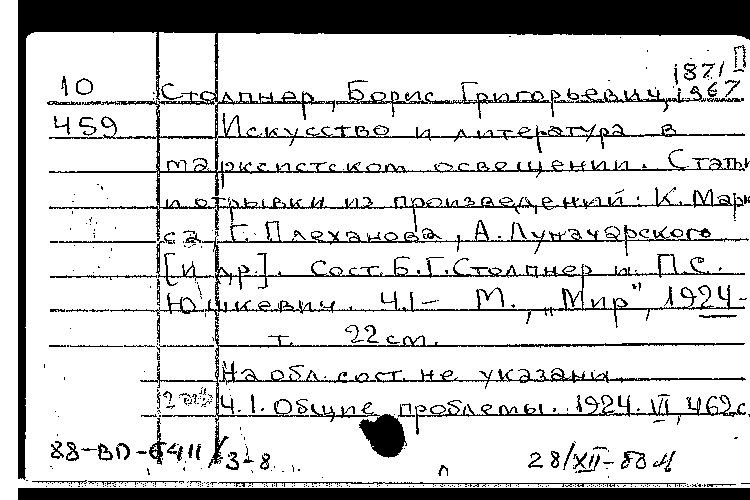 1871
10 Столпнер, Борис Григорьевич, 1967
459 Искусство и литература в
марксистском освещении. Статьи
и отрывки из произведений: К. Марк
са Г. Плеханова, А. Луначарского
[и др.]. Сост. Б.Г. Столпнер и П.С.
Юшкевич. Ч.I– М., „Мир", 1924–
т. 22 см.
На обл. сост. не указани
Ч.1. Общие проблемы. 1924. VI, 462 с
88-ВП-6411/3-8 28/XII-88